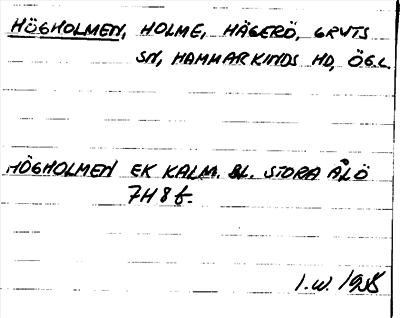 HÖGHOLMEN, HOLME, HÄGERÖ, GRYTS
SN, HAMMARKINDS HD, ÖGL
HÖGHOLMEN EK KALM. BL. STORA ÅLÖ
7H 8f.
I.W.